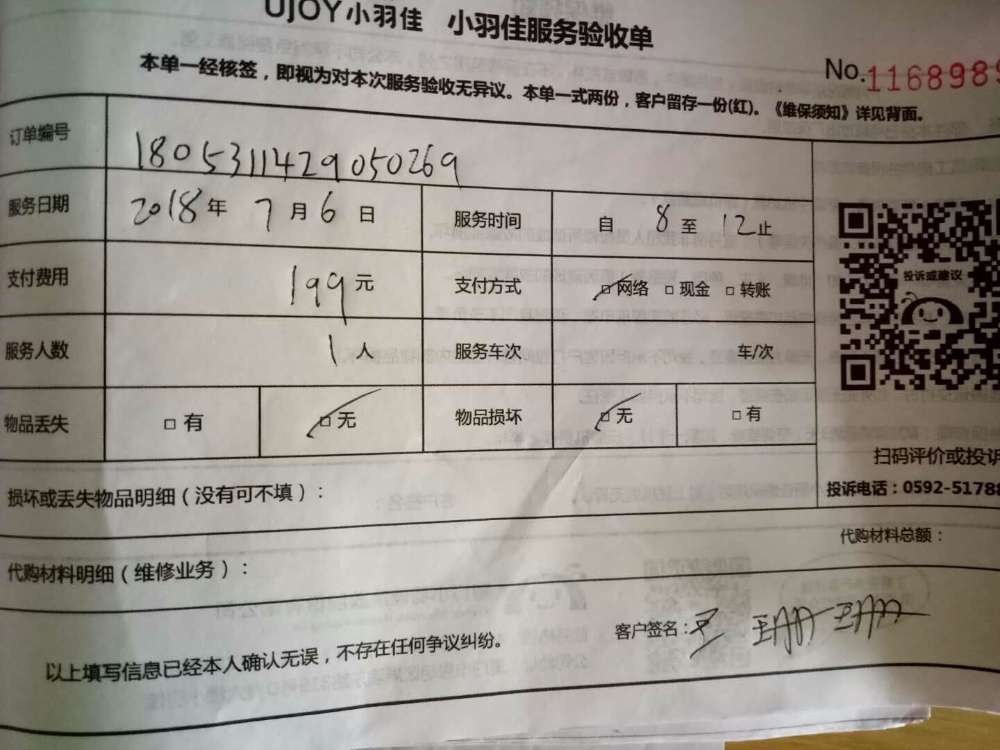 UJOY小羽佳 小羽佳服务验收单
No.1168989
本单一经核签，即视为对本次服务验收无异议。本单一式两份，客户留存一份(红)。《维保须知》详见背面。
订单编号 1805311429050269
服务日期 2018年7月6日 服务时间 自8至12止
支付费用 199元 支付方式 □网络 □现金 □转账
投诉或建议
服务人数 1人 服务车次 车/次
物品丢失 □有 □无 物品损坏 □无 □有
扫码评价或投诉
投诉电话：0592-51788
损坏或丢失物品明细（没有可不填）：
代购材料总额：
代购材料明细（维修业务）：
以上填写信息已经本人确认无误，不存在任何争议纠纷。
客户签名：王珊珊